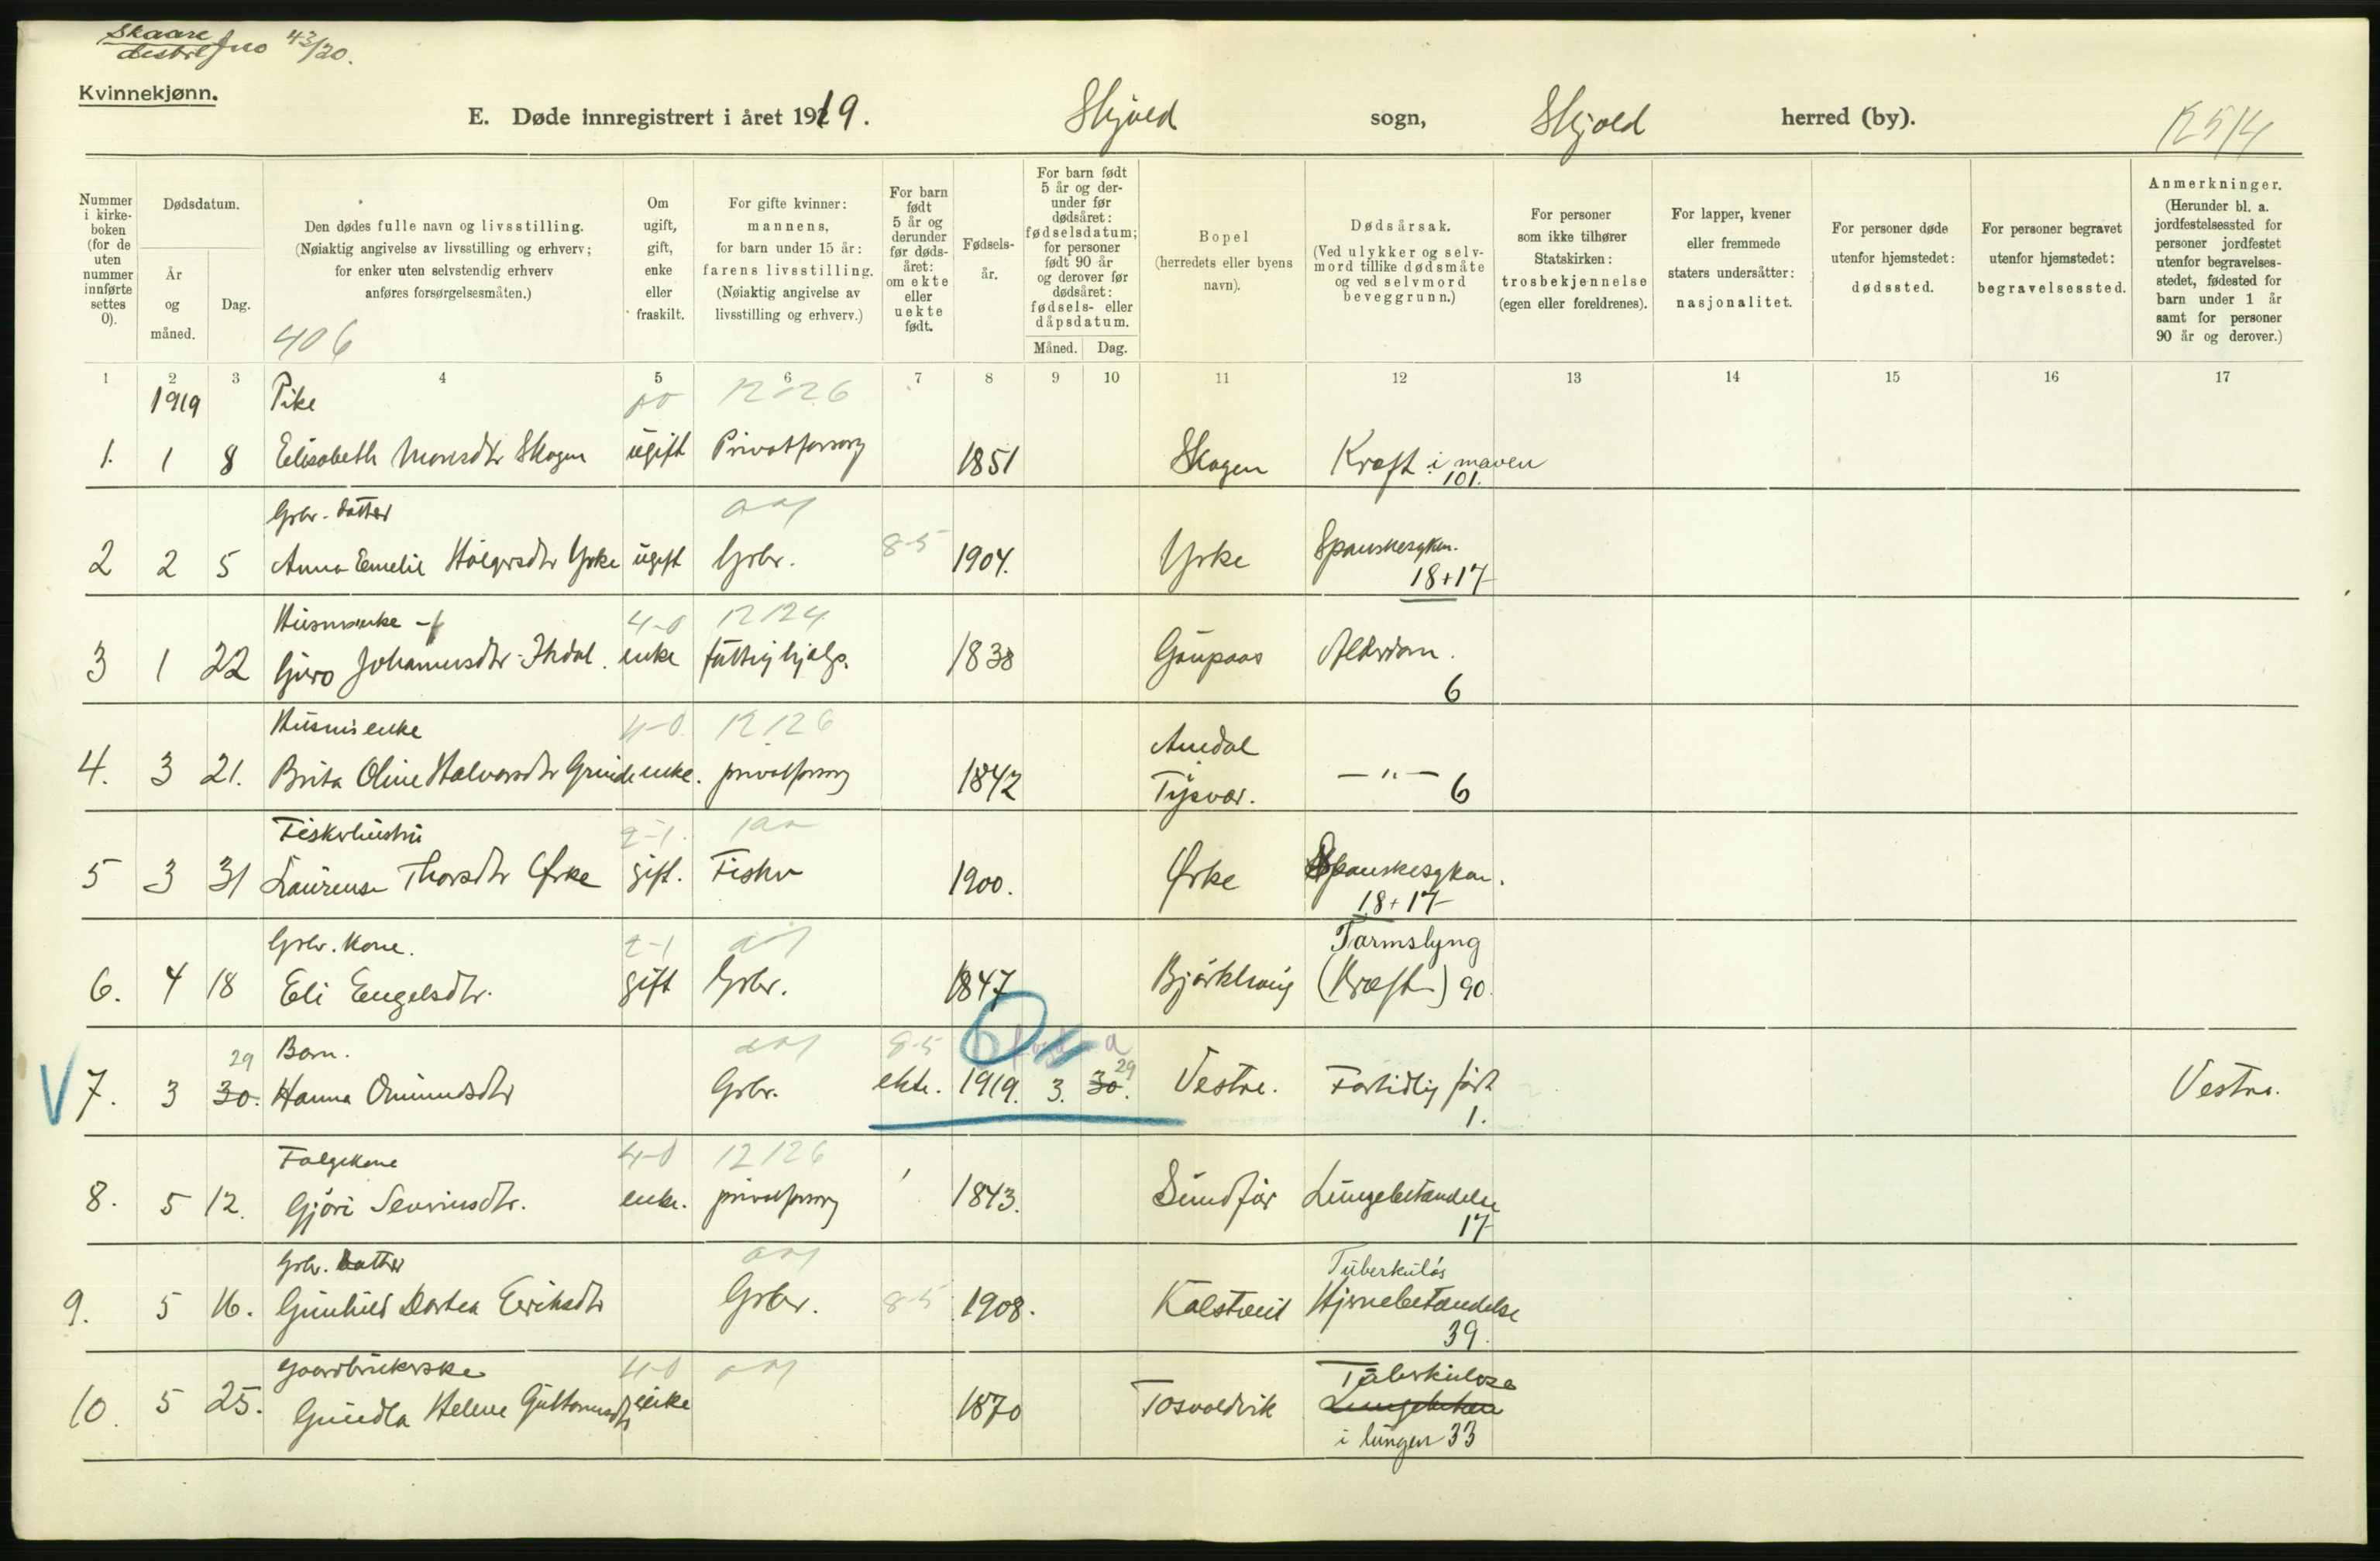 Skaare
distr. Jno 43/20.
Kvinnekjønn.
E. Døde innregistrert i året 1919.
Skjold sogn, Skjold herred (by).
Nummer i kirkeboken (for de uten nummer innførte settes 0).
Dødsdatum.
År og måned.
Dag.
Den dødes fulle navn og livsstilling.
(Nøiaktig angivelse av livsstilling og erhverv; for enker uten selvstendig erhverv anføres forsørgelsesmåten.)
406
Om ugift, gift, enke eller fraskilt.
For gifte kvinner: mannens, for barn under 15 år: farens livsstilling. (Nøiaktig angivelse av livsstilling og erhverv.)
For barn født 5 år og derunder før dødsåret: om ekte eller uekte født.
Fødselsår.
For barn født 5 år og derunder før dødsåret: fødselsdatum; for personer født 90 år og derover før dødsåret: fødsels- eller dåpsdatum.
Måned. Dag.
Bopel (herredets eller byens navn).
Dødsårsak. (Ved ulykker og selvmord tillike dødsmåte og ved selvmord beveggrunn.)
For personer som ikke tilhører Statskirken: trosbekjennelse (egen eller foreldrenes).
For lapper, kvener eller fremmede staters undersåtter: nasjonalitet.
For personer døde utenfor hjemstedet: dødssted.
For personer begravet utenfor hjemstedet: begravelsessted.
Anmerkninger. (Herunder bl. a. jordfestelsessted for personer jordfestet utenfor begravelsesstedet, fødested for barn under 1 år samt for personer 90 år og derover.)
1 2 3 4 5 6 7 8 9 10 11 12 13 14 15 16 17
1919 Pike
1. 1 8 Elisabeth Monsdtr Skogen ugift Privatforsorg 1851 Skogen Kræft i maven
101.
Grbr. datter
2 2 5 Anna Emelie Holgersdtr Yrke ugift Grbr. 8-5 1904. Yrke Spanskesyken.
18+17
4-0
3 1 22 Guro Johannesdtr enke fattighjelp. 1838 Gaupaas Alderdom.
6
Husm. enke 4-0
4. 3 21. Brita Oline Halvorsdtr Grinde enke. privatforsorg 1842 Amdal
Tysvær. —"— 6
Fiskerhustru 2-1.
5 3 31 Laurense Thorsdtr Yrke gift. Fisker 1900. Yrke Spanskesyken.
18+17
Grbr. kone. 2-1 Tarmslyng
6. 4 18 Eli Engelsdtr. gift Grbr. 1847 (Kræft) 90.
29 Barn. 8-5 29
V 7. 3 30. Hanna Omundsdtr Grbr. ekte. 1919. 3. 30. Vestre. Fortidlig født Vestre.
1.
4-0
8. 5 12. Gjøri Sevrinsdtr. enke. privatforsorg 1843. Sundfør Lungebetændelse
17
Grbr. datter Tuberkuløs
9. 5 16. Gunhild Dortea Eriksdtr Grbr. 8-5 1908. Kalstveit Hjernebetændelse
39.
Gaardbrukerske 4-0 Tuberkulose
10. 5 25. Gundla Helene Guttormsdtr enke 1870 Tosvoldvik
i lungen 33